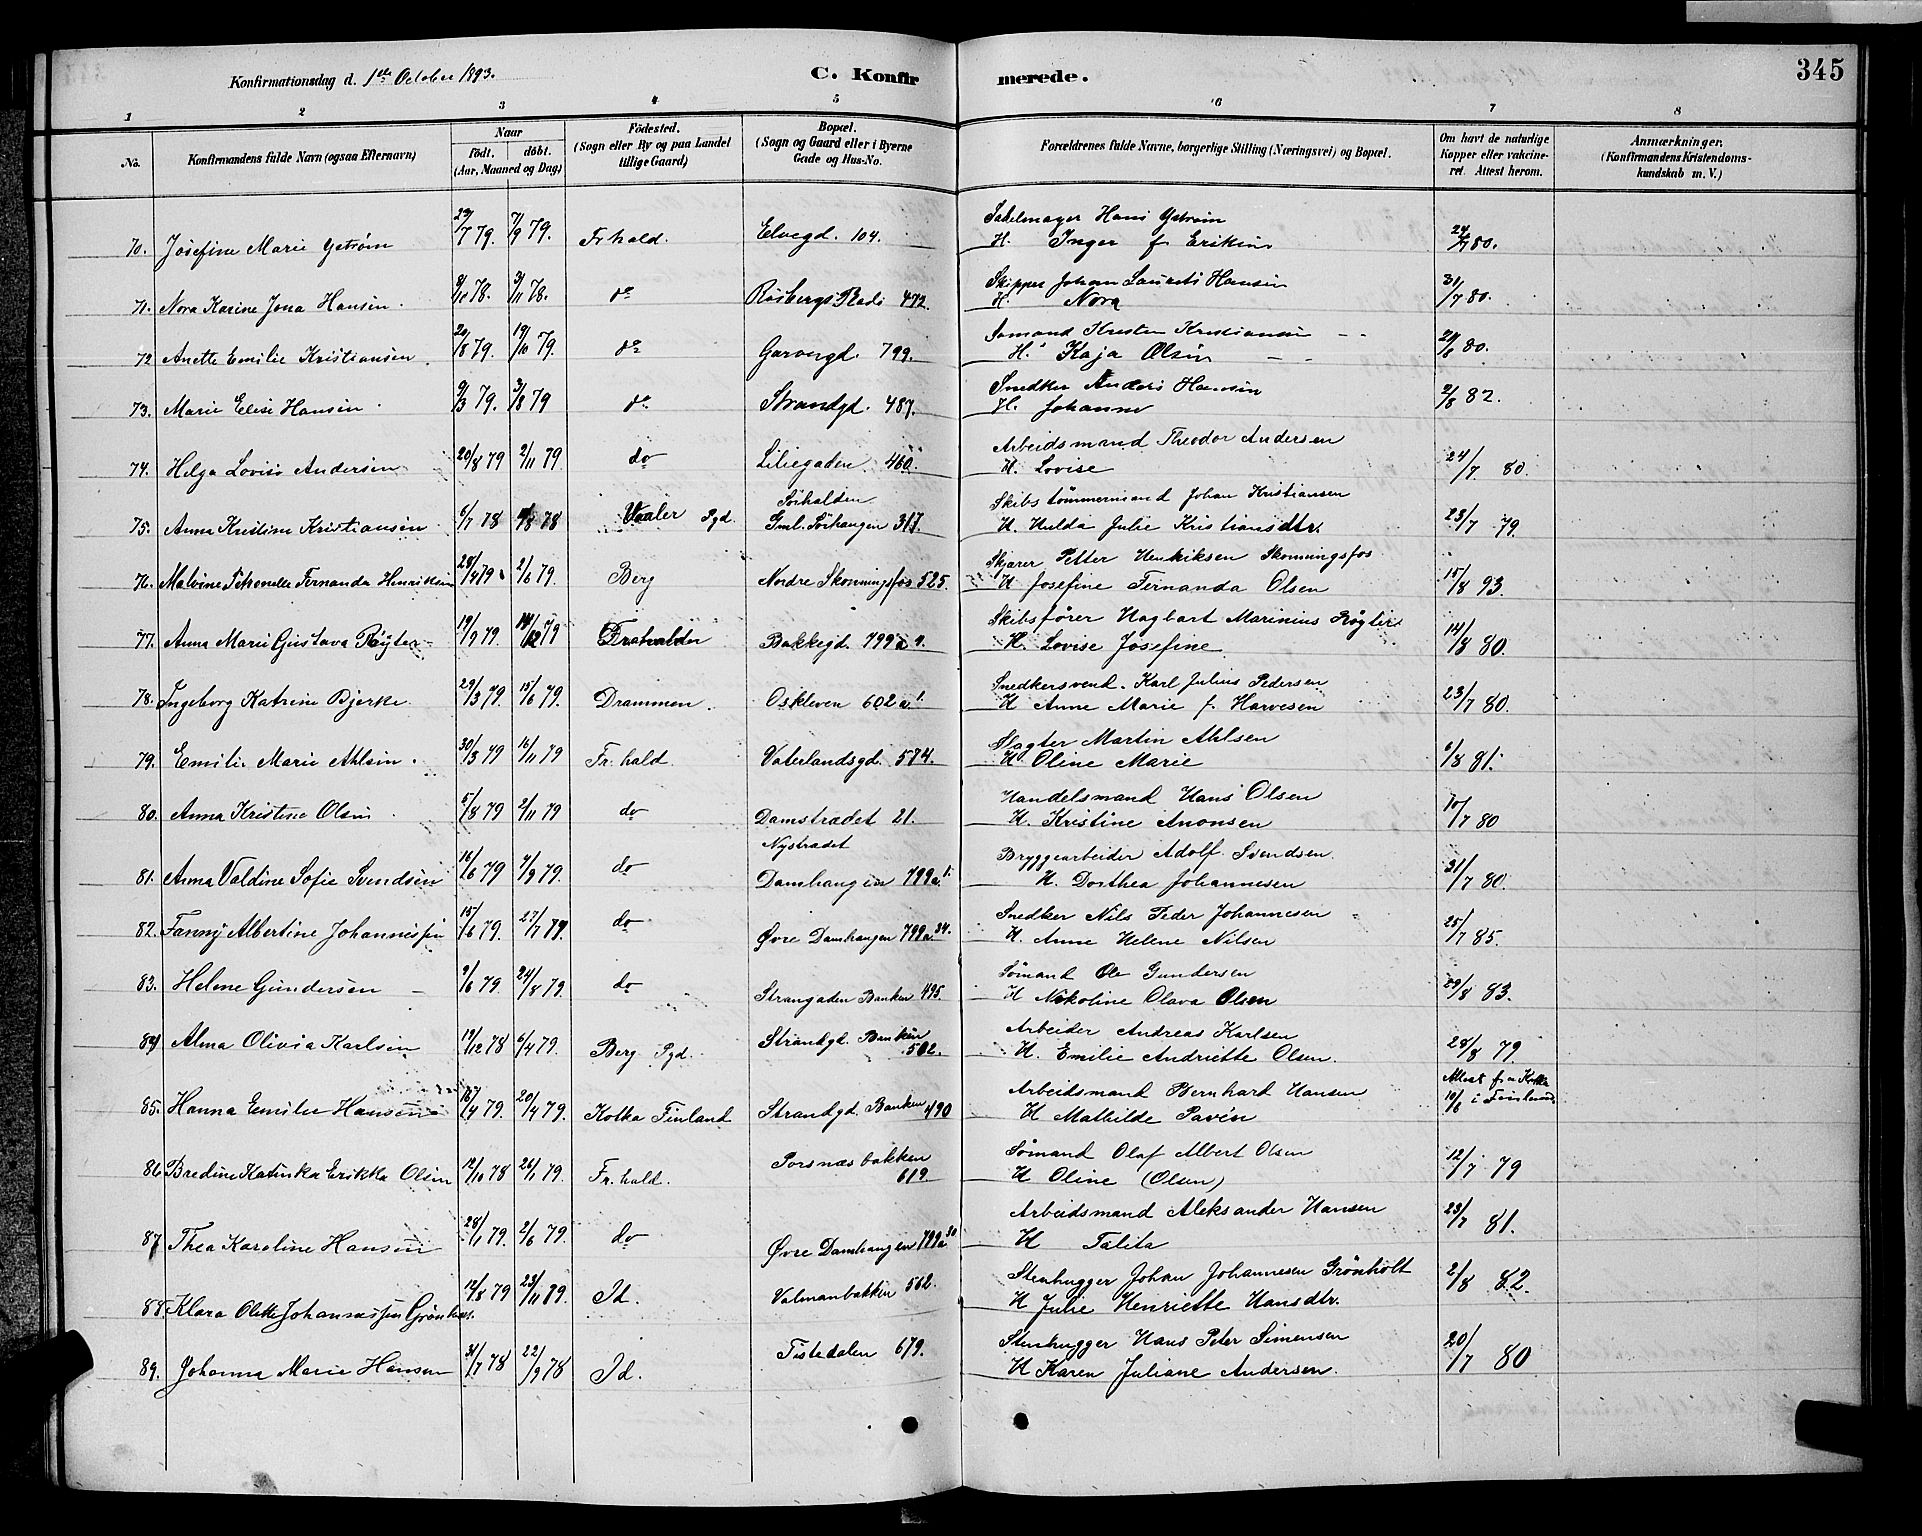 345
Konfirmationsdag d. 1ste October 1893.
C. Konfirmerede.
1 2 3 4 5 6 7 8
No.
Konfirmandens fulde Navn (ogsaa Efternavn)
Naar
födt. döbt.
(Aar, Maaned og Dag)
Födested.
(Sogn eller By og paa Landet
tillige Gaard)
Bopæl.
(Sogn og Gaard eller i Byerne
Gade og Hus-No.
Forældrenes fulde Navne, borgerlige Stilling (Næringsvei) og Bopæl.
Om havt de naturlige
Kopper eller vakcine-
ret. Attest herom.
Anmærkninger.
(Konfirmandens Kristendoms-
kundskab m. V.)
Hans Ystrøm
70. Josefine Marie Ystrøm 7/9 79. Fr.hald. Elvegd. 104. H. Inger f. 80.
Skipper Johan Laurits Hansen
71. Nora Karine Hansen. 78. 3/11 78. do 472. H. Nora 31/7 80.
Kristiansen
72 Anette Emilie Kristiansen. 20/8 79. 19/10 79. do 799. H. Kaja Olsen 80.
Snedker Anders Hansen
73. Marie Elise Hansen. 9/3 79. 3/8 79 do Strandgd. 487. H. Johanne 2/8 82.
Arbeidsmand Theodor Andersen
74. Helga Lovise Andersen 20/8 79 2/11 79. do Liliegaden 460. H. Lovise 24/7 80.
Skibstömmermand Johan Kristiansen
75. Anna Kristine Kristiansen 6/7 78 78 Vaaler Pgd. Sörhalden Gml. Sörhaugen 317 H. Hulda Julie Kristiansdtr. 23/7 79.
Petter Henriksen Skonningsfos
76. Malvine Fernanda Henriksen 79. 2/6 79. Berg Nordre Skonningsfos 525. H. Josefine Fernanda Olsen 15/8 93.
Skibsförer Hagbart Marinius
77. Anna Marie Gustava 19/9 79. 79 Fr.halden Bakkegd. 799a 9. H. Lovise Josefine 14/8 80.
Snedkersvend. Karl Julius Pedersen
78. Ingeborg Katrine Bjerke 29/3 79. 15/6 79. Drammen. Oskleven 602a 1. H. Anne Marie f. Harvesen 23/7 80.
Slagter Martin Ahlsen
79. Emilie Marie Ahlsen. 30/3 79 16/11 79 Fr.hald. Vaterlandsgd. 574. H. Oline Marie 6/8 91.
Handelsmand Hans Olsen
80. Anna Kristine Olsen 5/8 79 2/11 79 do Damstrædet 21. H. Kristine Anonsen 10/7 80
Nystrædet Bryggearbeider Adolf Svendsen
81. Anna Valdine Sofie Svendsen 16/6 79 7/9 79. do Damhaugen 799a 1. H. Dorthea Johannesen 31/7 80.
Snedker Nils Peder Johannesen
82. Fanny Albertine Johannesen 15/6 79. 27/7 79. do Øvre Damhaugen 799a 34. H. Anne Helene Nilsen 25/7 85.
Sömand Ole Gundersen
83. Helene Gundersen 79. 24/8 79. do Strangaden Banken 495. H. Nikoline Olava Olsen 29/8 83.
Arbeider Andreas Karlsen
84 Alma Olivia Karlsen 19/12 78 6/4 79. Berg Pgd. Strandgd. Banken 502. H. Emilie Andriette Olsen. 28/8 79
Arbeidsmand Bernhard Hansen
85. Hanna Emilie Hansen 79. 20/4 79. Kotka Finland Strandgd. Banken 490 H. Mathilde Attest fra Kotka 10/6 i Finland
Sömand Olaf Albert Olsen
86. Bredine Katinka Erikka Olsen 12/10 78 26/1 79. Fr.hald. Porsnæsbakken 619. H. Oline (Olsen) 12/7 79
Arbeidsmand Aleksander Hansen
87 Thea Karoline Hansen 28/1 79. 2/6 79. do Øvre Damhaugen 799a 30 H. Talita 23/7 81.
Stenhugger Johan Johannesen Grönholt
88. Klara Olette Johannessen 12/8 79 23/11 79. Id. Valmanbakken 562. H. Julie Henriette Hansdtr. 2/8 82.
Stenhugger Hans Peter Simensen
89. Johanna Marie Hansen 31/7 78 22/9 78 Id. Tistedalen 619. H. Karen Juliane Andersen. 20/7 80